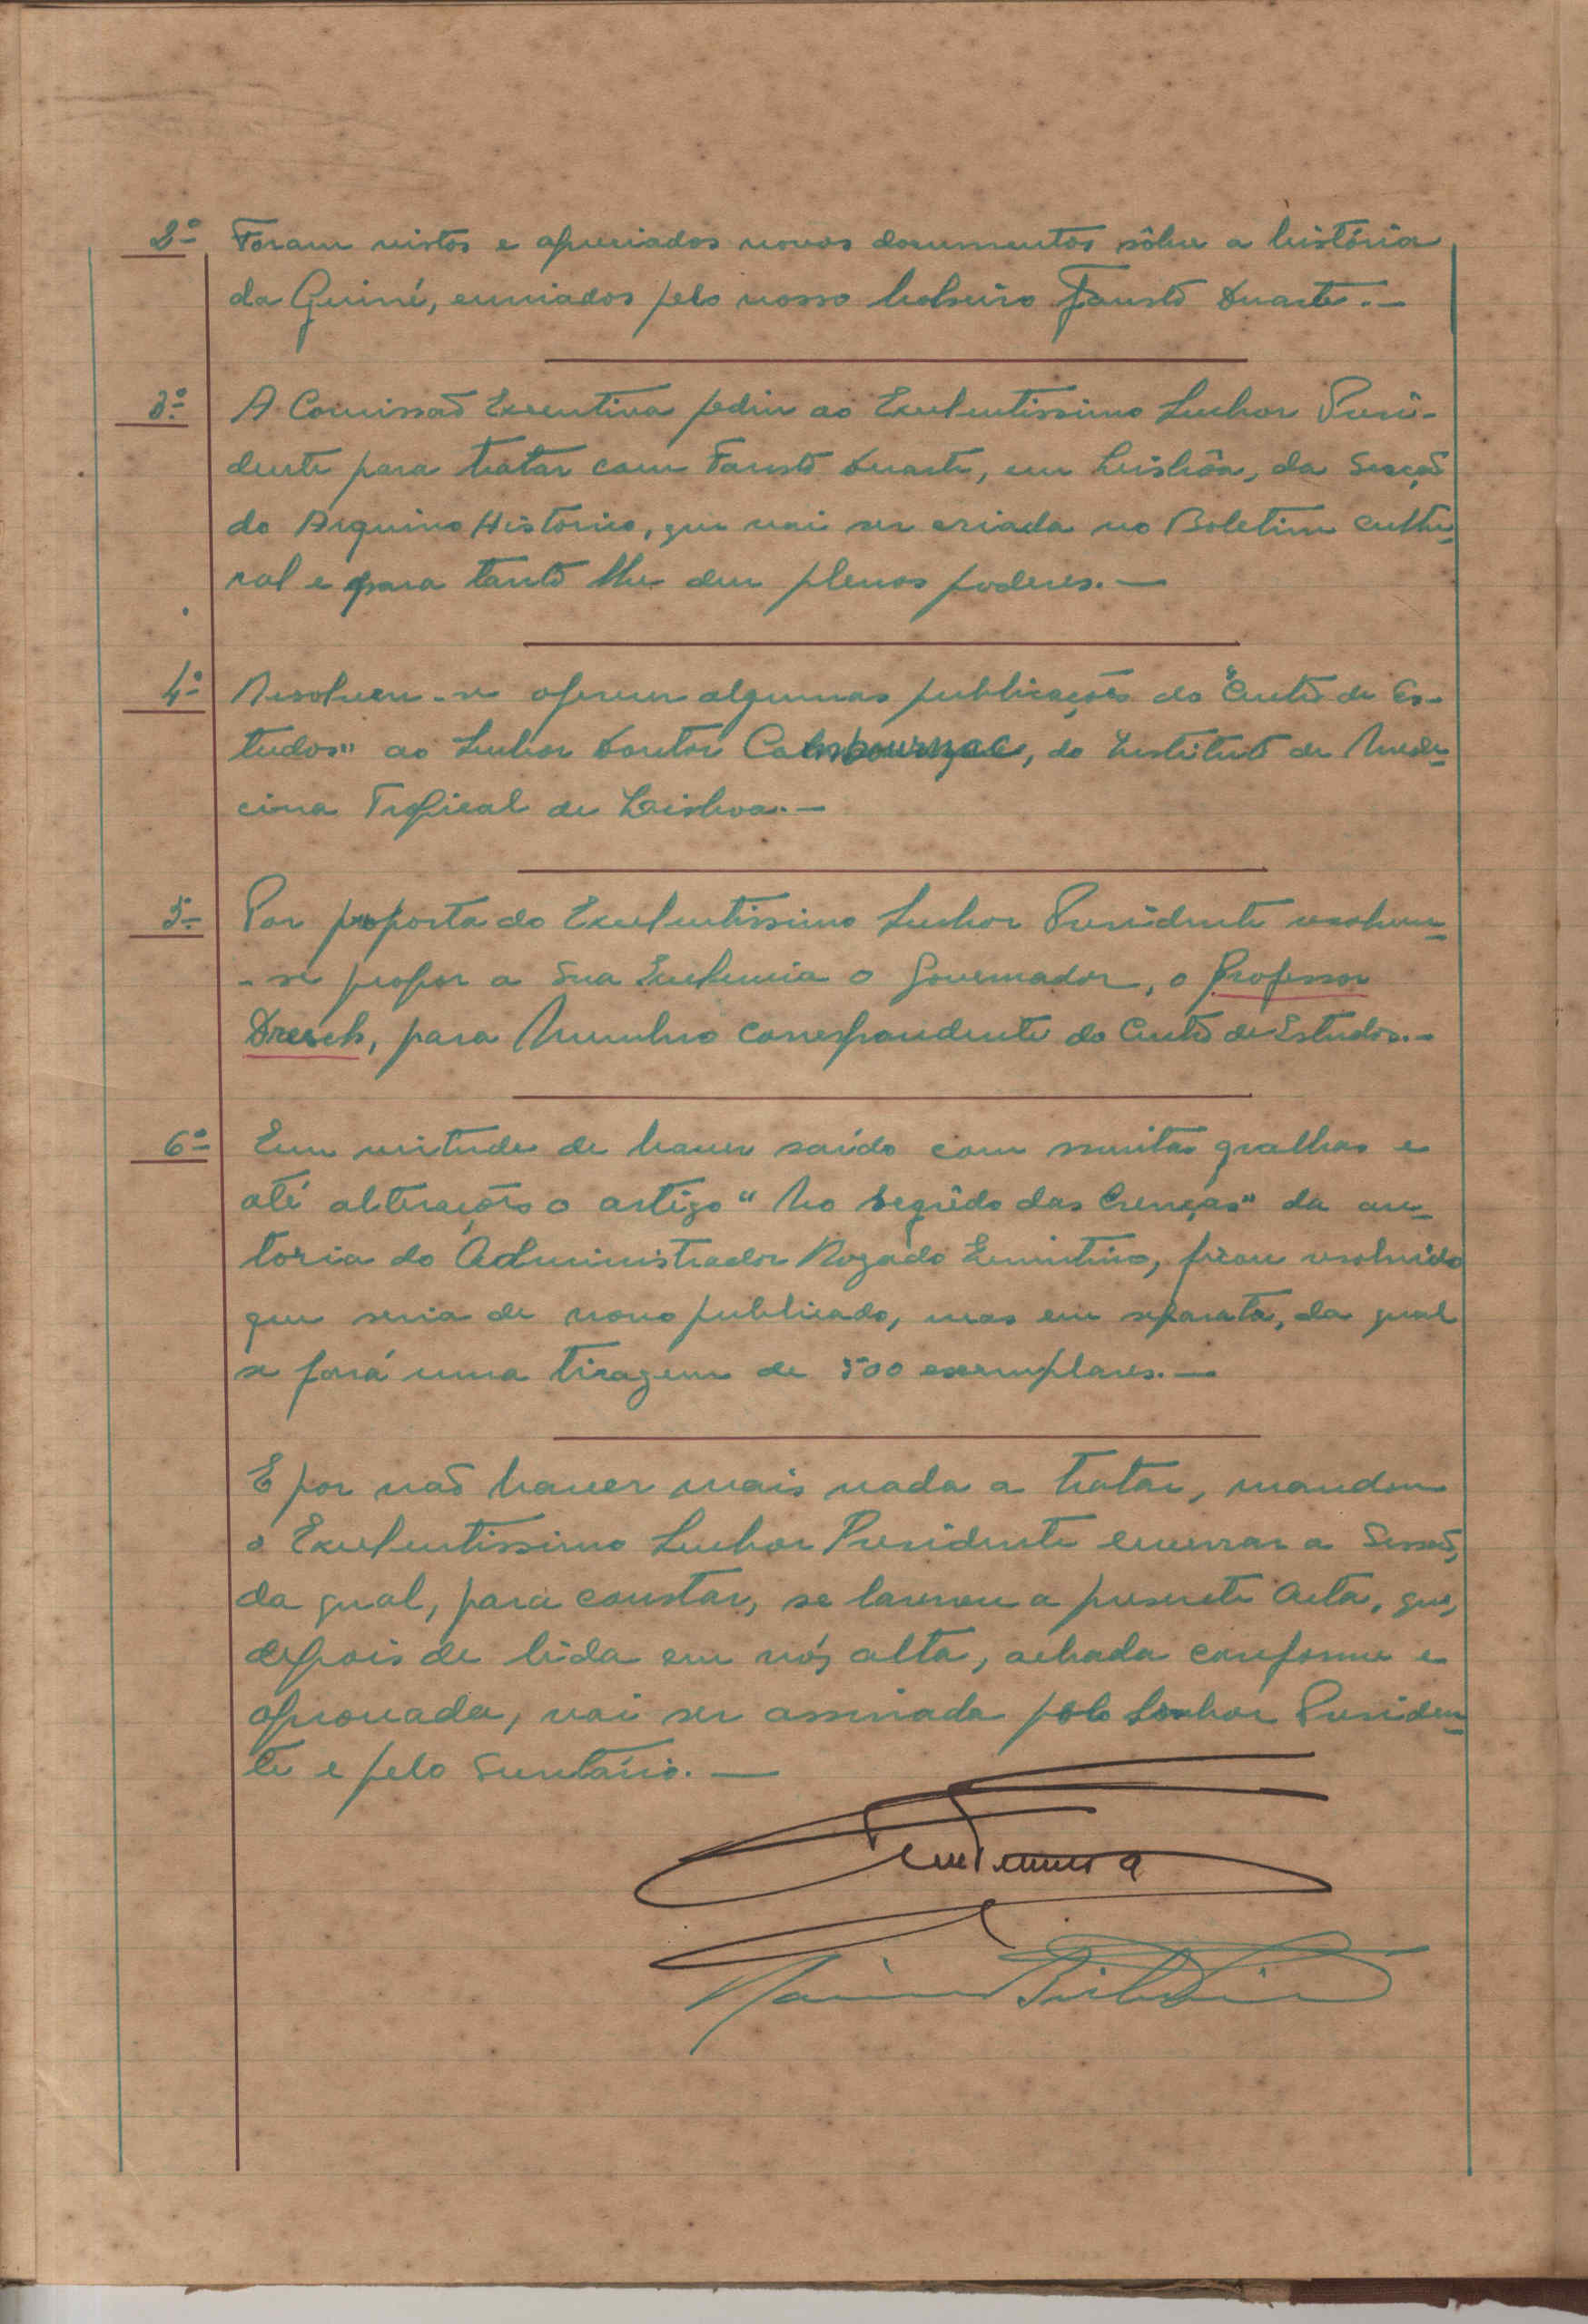 2º Foram vistos e apreciados novos documentos sôbre a história
da Guiné, enviados pelo nosso bolseiro Fausto Duarte.—
3º A Comissão Executiva pediu ao Excelentissimo Senhor Presi-
dente para tratar com Fausto Duarte, em Lisbôa, da Secção
do Arquivo Histórico, que vai ser criada no Boletim Cultu-
ral e para tanto lhe deu plenos poderes.—
4º Resolveu-se oferecer algumas publicações do "Centro de Es-
tudos" ao Senhor Doutor Cambournac, do Instituto de Medi-
cina Tropical de Lisboa.—
5º Por proposta do Excelentissimo Senhor Presidente resolveu-
-se propor a Sua Excelencia o Governador, o Professor
Dresch, para Membro correspondente do Centro de Estudos.—
6º Em virtude de haver saído com muitas gralhas e
até alterações o artigo "No Segrêdo das Crenças" da au-
toria do Administrador Rogado Quintino, ficou resolvido
que seria de novo publicado, mas em separata, da qual
se fará uma tiragem de 500 exemplares.—
E por não haver mais nada a tratar, mandou
o Excelentissimo Senhor Presidente encerrar a Sessão,
da qual, para constar, se lavrou a presente acta, que,
depois de lida em vóz alta, achada conforme e
aprovada, vai ser assinada pelo Senhor Presiden-
te e pelo Secretário.—